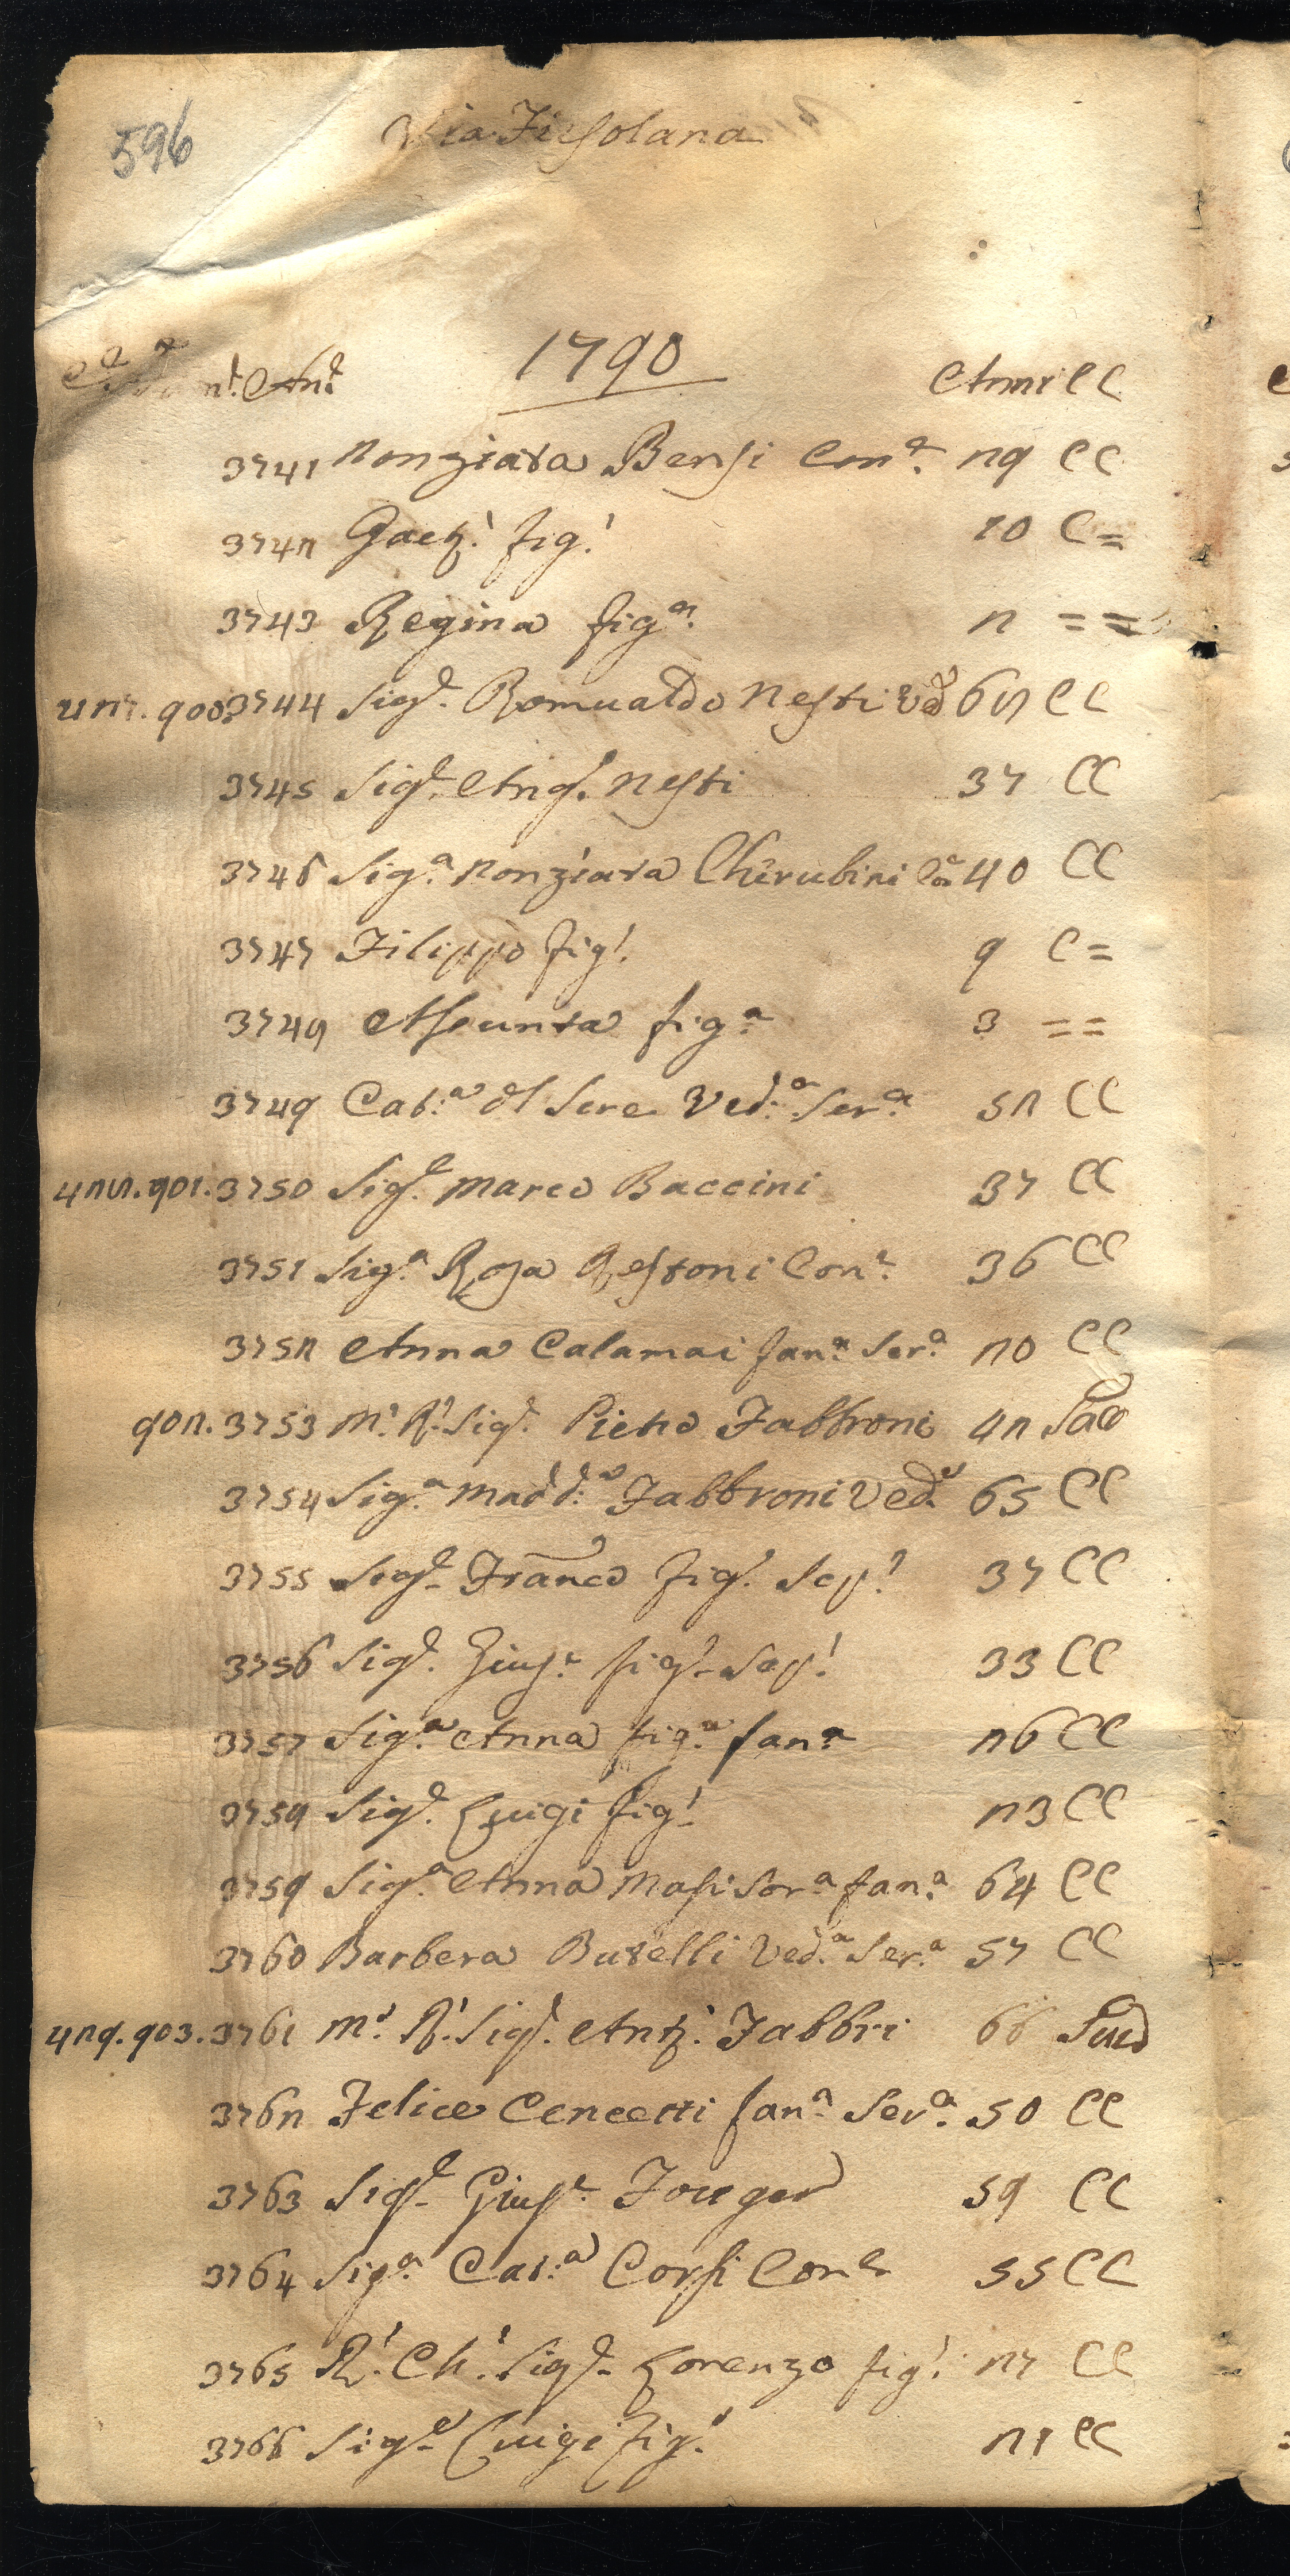 596
Via Fiesolana
1790
n.° An.e Anni CC
3741 Nonziata Bensi Con.e 29 CC
3742 Gaet.° fig.° 10 C=
3743 Regina fig.a 2 ==
421. 900. 3744 Sig.e Romualdo Nesti Ved.o 62 CC
3745 Sig.e Ang.° Nesti 37 CC
3746 Sig.a Nonziata Cherubini Con.e 40 CC
3747 Filippo fig.° 9 C=
3748 Assunta fig.a 3 ==
3749 Cat.a del Sere Ved.a Ser.a 52 CC
422. 901. 3750 Sig.e Marco Baccini 37 CC
3751 Sig.a Rosa Restoni Con.e 36 CC
3752 Anna Calamai fan.a Ser.a 20 CC
902. 3753 M.° R.° Sig.e Pietro Fabbroni 42 Sac
3754 Sig.a Madd.a Fabbroni Ved.a 65 CC
3755 Sig.e Franco fig.° Sep.° 37 CC
3756 Sig.e Giusp.e fig.° Sep.° 33 CC
3757 Sig.a Anna fig.a fan.a 26 CC
3758 Sig.e Luigi fig.° 23 CC
3759 Sig.a Anna Masi Sor.a fan.a 64 CC
3760 Barbera Butelli Ved.a Ser.a 57 CC
429. 903. 3761 M.° R.° Sig.e Ant.° Fabbri 66 Sac
3762 Felice Cencetti fan.a Ser.a 50 CC
3763 Sig.e Giusp.e Fouger 59 CC
3764 Sig.a Cat.a Corsi Con.e 55 CC
3765 R.° Ch.° Sig.e Lorenzo fig.° 27 CC
3766 Sig.e Luigi fig.° 21 CC